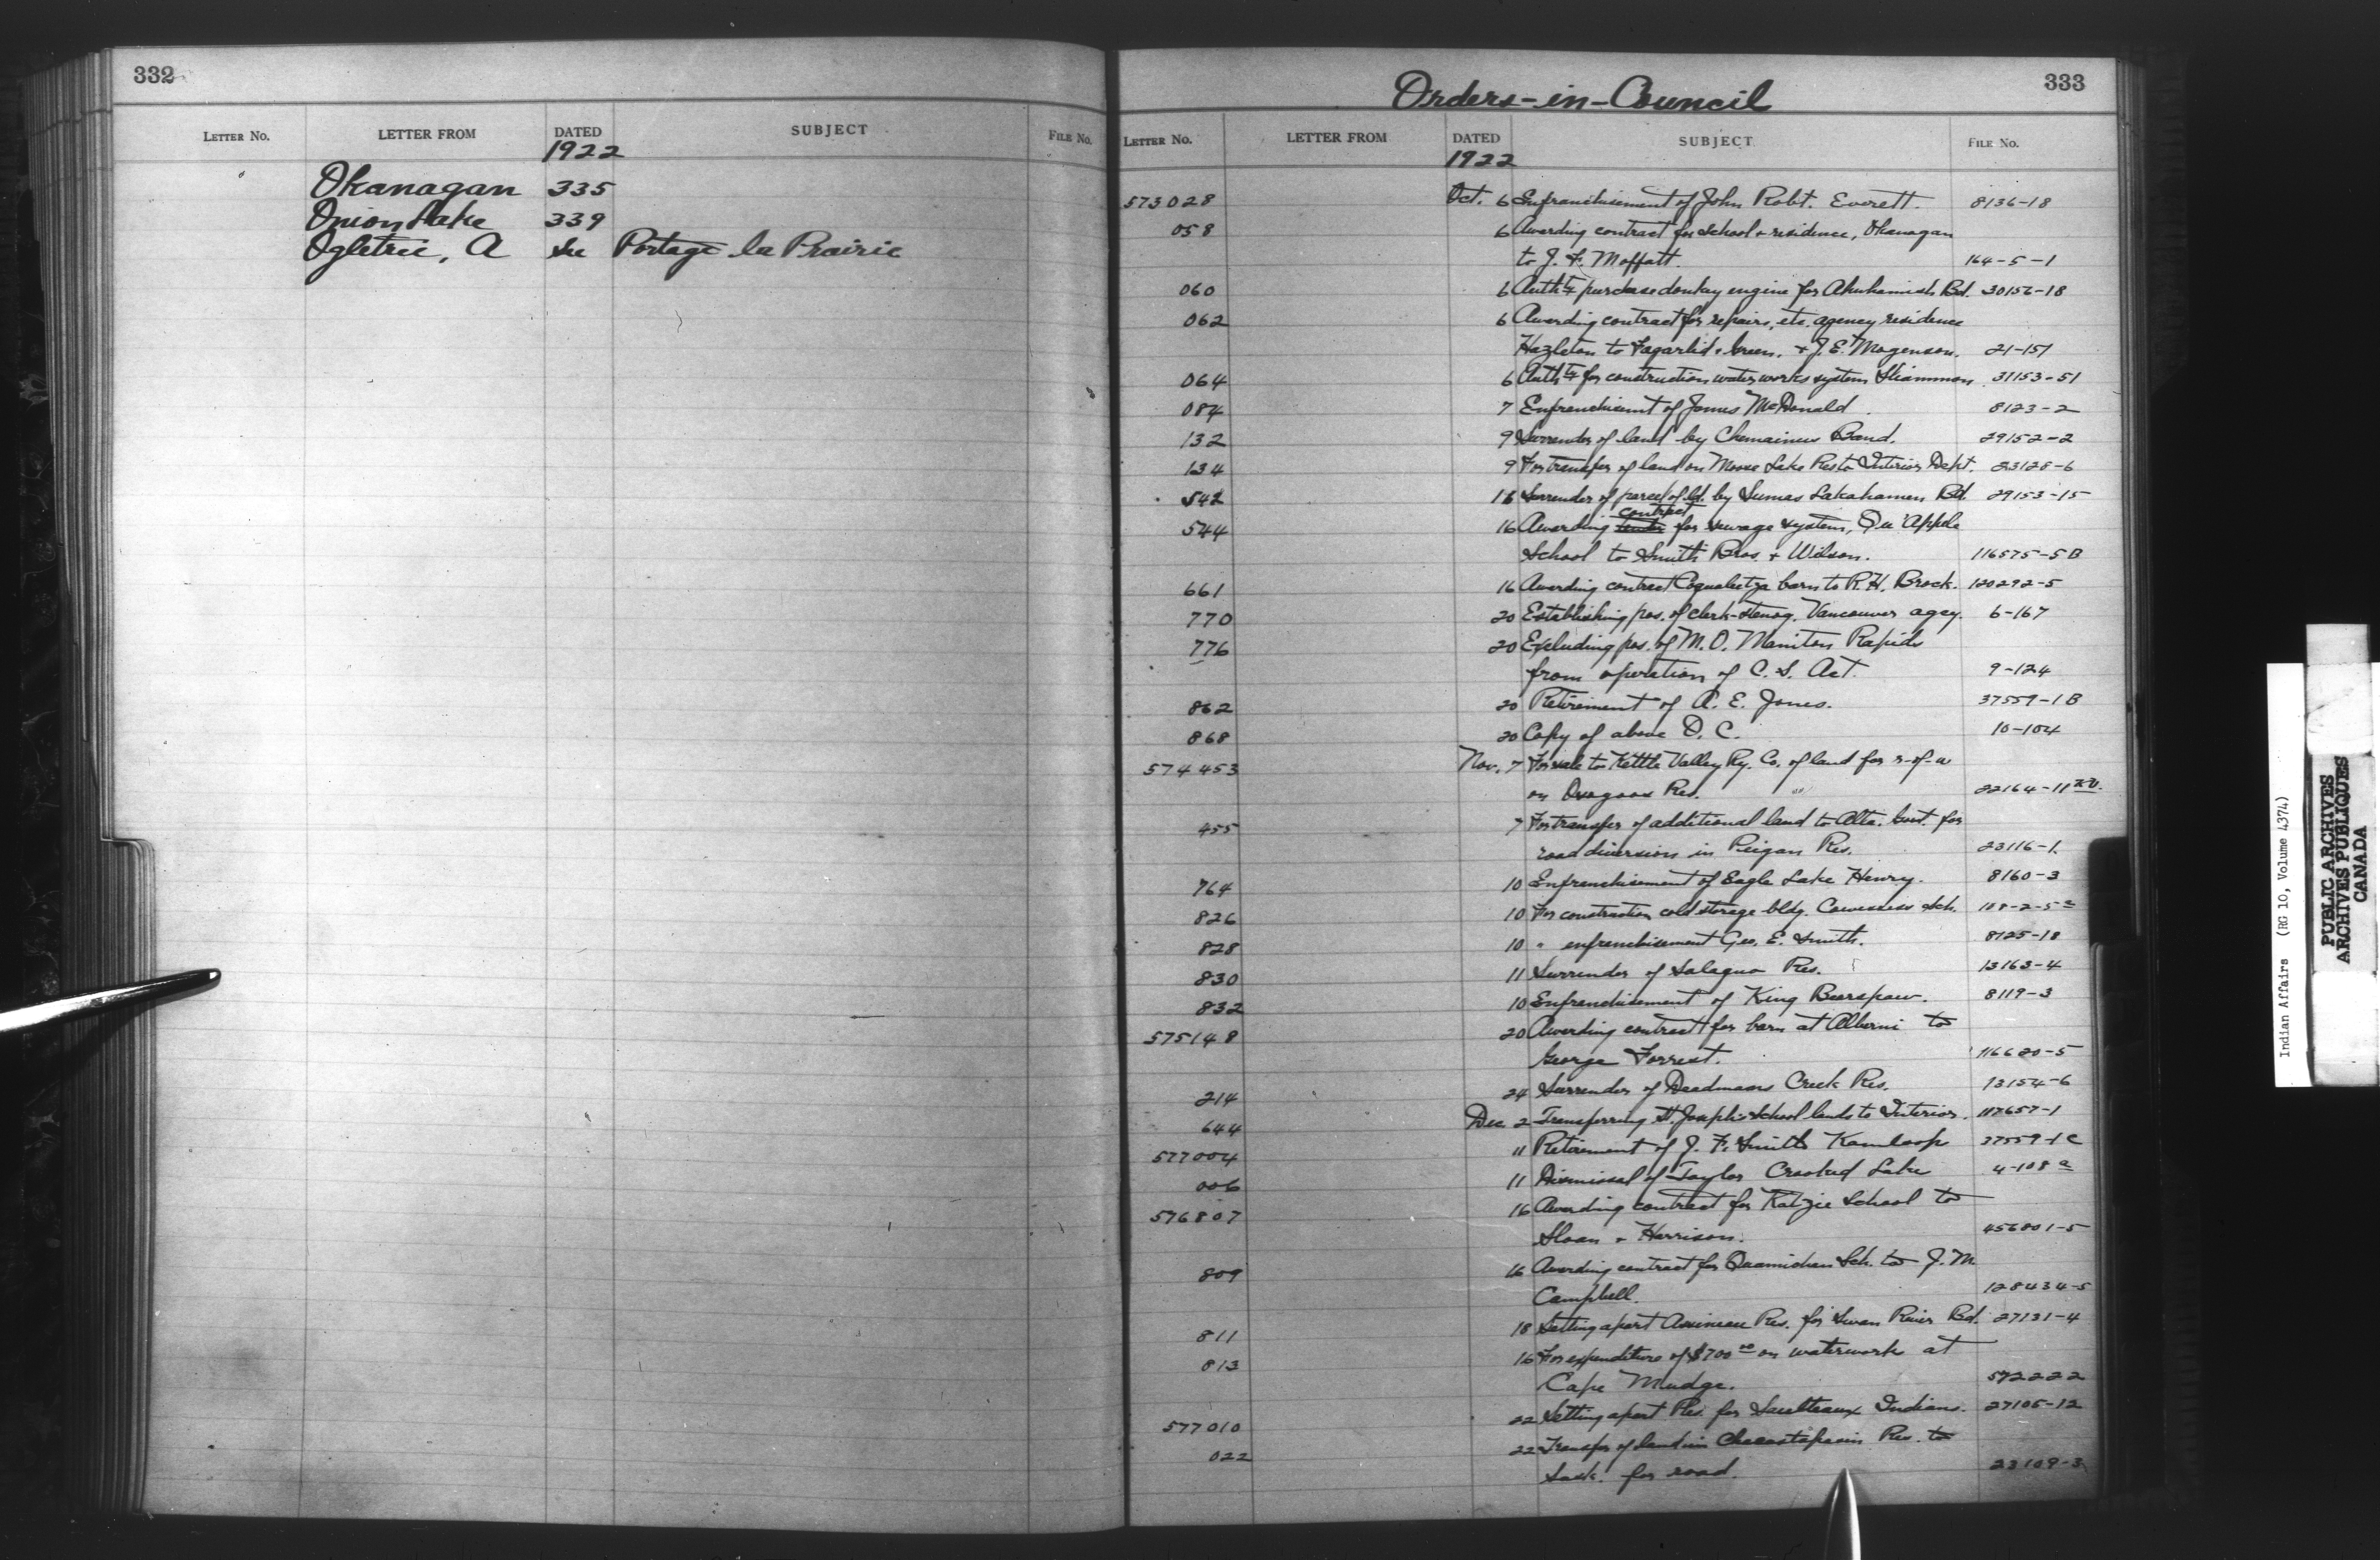 332
LETTER No. LETTER FROM DATED SUBJECT FILE No.
1922
Okanagan 335
Onion Lake 339
Ogletrie, A See Portage la Prairie
Orders-in-Council 333
LETTER No. LETTER FROM DATED SUBJECT FILE No.
1922
573028 Oct. 6 Enfranchisement of John Robt. Everett. 8136-18
058 6 Awarding contract for school + residence, Okanagan
to J. F. Moffatt. 164-5-1
060 6 Authty purchase donkey engine for Bd. 30156-18
062 6 Awarding contract for repairs, etc. agency residence
Hazleton to Fagarlid + Green. + J. E. Mogenson. 21-151
064 6 Authty for construction waterworks system Sliammon 31153-51
084 7 Enfranchisemt of James McDonald. 8123-2
132 9 Surrender of land by Chemainus Band. 29152-2
134 9 For transfer of land on Moose Lake Res to Interior Dept. 23128-6
542 16 Surrender of parcel of ld. by Sumas Lakahamen Bd. 29153-15
contract
544 16 Awarding tender for sewage system, Qu'Appele
School to Smith Bros. + Wilson. 116575-5B
661 16 Awarding contract Coqualeetza barn to R. H. Brock. 120292-5
770 20 Establishing pos. of clerk-stenog. Vancouver agcy. 6-167
776 20 Excluding pos. of M.O. Manitou Rapids
from operation of C. S. Act. 9-124
862 20 Retirement of A. E. Jones. 37559-1B
868 20 Copy of above O. C. 10-104
574453 Nov. 7 For sale to Kettle Valley Ry. Co. of land for r-of-w
on Osoyoos Res. 22164-11
455 7 For transfer of additional land to Alta. Govt. for
road diversion in Peigan Res. 23116-1.
764 10 Enfranchisement of Eagle Lake Henry. 8160-3
826 10 For construction cold storage bldg. Cowessess Sch. 108-2-5
828 10 " enfranchisement Geo. E. Smith. 8125-18
830 11 Surrender of Salaqua Res. 13163-4
832 10 Enfranchisement of King Bearspaw. 8119-3
575148 20 Awarding contract for barn at Alberni to
George Forrest. 116620-5
214 24 Surrender of Deadmans Creek Res. 13154-6
644 Dec 2 Transferring St. Joseph's School lands to Interior. 117657-1
577004 11 Retirement of J. F. Smith Kamloop 37559-1C
006 11 Dismissal of Taylor Crooked Lake 4-108a
576807 16 Awarding contract for Katzie School to
Sloan + Harrison. 456801-5
809 16 Awarding contract for Quamichan Sch. to J. M.
Campbell. 128434-5
811 18 Setting apart Assineau Res. for Swan River Bd. 27131-4
813 16 For expenditure of $700 00 on waterwork at
Cape Mudge. 572222
577010 22 Setting apart Res. for Saulteaux Indians. 27105-12
022 22 Transfer of land in Res. to
Sask. for road. 23109-3
Indian Affairs (RG 10, Volume 4374)
PUBLIC ARCHIVES
ARCHIVES PUBLIQUES
CANADA